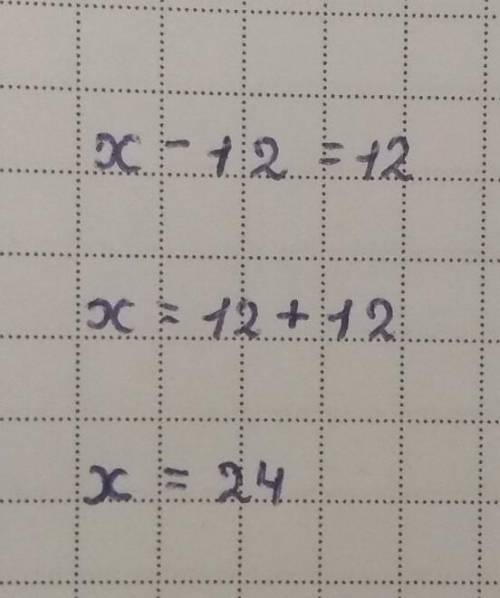 x - 12 = 12
x = 12 + 12
x = 24